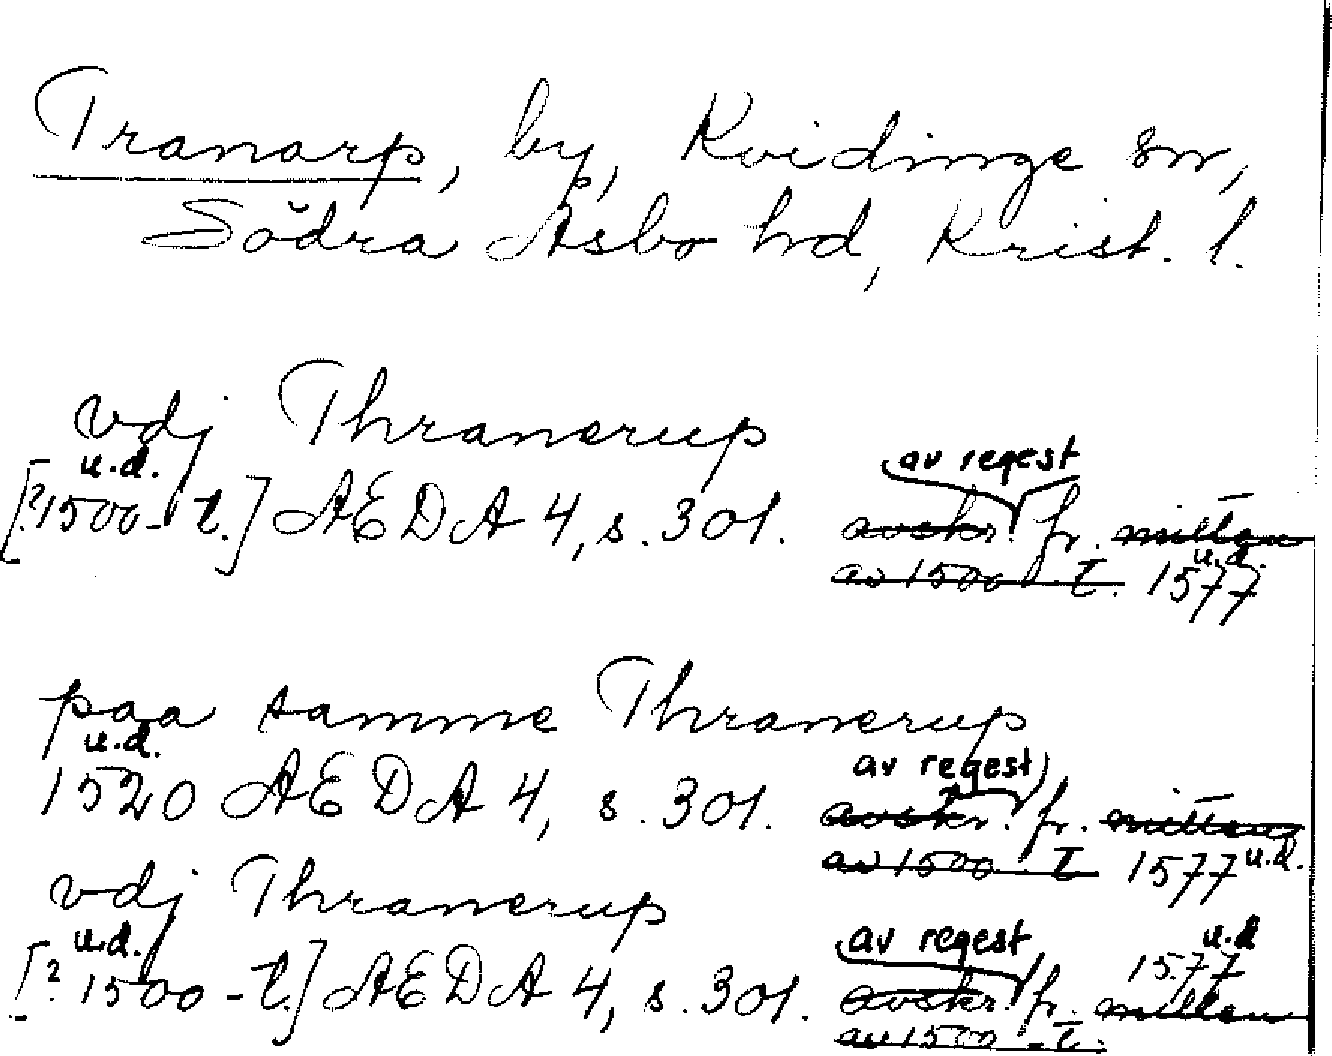 Tranarp, by, Kvidinge sn,
Södra Åsbo hd, Krist. l.
vdj Thranerup
u.d. av regest
[?1500-t.] ÆDA 4, s. 301. avskr. fr. mitten
av 1500-t. 1577 u.d.
paa samme Thranerup
u.d. av regest
1520 ÆDA 4, s. 301. avskr. fr. mitten
av 1500-t 1577 u.d.
vdj Thranerup
u.d. av regest 1577 u.d
[? 1500-t.] ÆDA 4, s. 301. avskr. fr. mitten
av 1500-t.